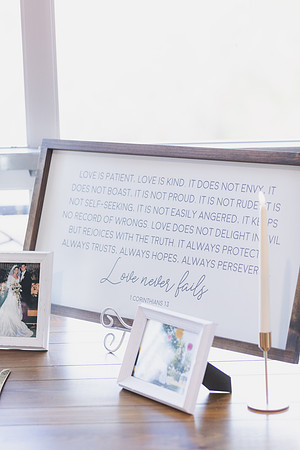 LOVE IS PATIENT. LOVE IS KIND. IT DOES NOT ENVY. IT
DOES NOT BOAST. IT IS NOT PROUD. IT IS NOT RUDE. IT IS
NOT SELF-SEEKING. IT IS NOT EASILY ANGERED. IT KEEPS
NO RECORD OF WRONGS. LOVE DOES NOT DELIGHT IN EVIL
BUT REJOICES WITH THE TRUTH. IT ALWAYS PROTECT
ALWAYS TRUSTS. ALWAYS HOPES. ALWAYS PERSEVER
Love never fails
1 CORINTHIANS 13